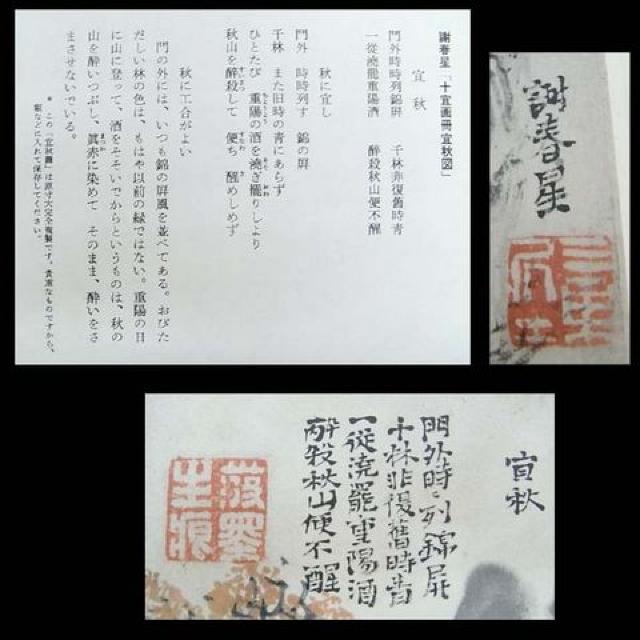 謝春星「十宜画冊宜秋図」
宜 秋
門外時時列錦屏　千林非復舊時青
一從澆罷重陽酒　醉殺秋山便不醒
秋に宜し
門外　時時列す　錦の屏
千林　また旧時の青にあらず
ひとたび　重陽の酒を澆ぎ罷りしより
秋山を醉殺して　便ち　醒めしめず
秋に工合がよい
門の外には、いつも錦の屏風を並べてある。おびた
だしい林の色は、もはや以前の緑ではない。重陽の日
に山に登って、酒をそそいでからというものは、秋の
山を酔いつぶし、真赤に染めて　そのまま、酔いをさ
まさせないでいる。
＊この「宜秋圖」は原寸大完全複製です。貴重なものですから、
額などに入れて保存してください。
謝春星
宜秋
門外時々列錦屏
千林非復舊時青
一從澆罷重陽酒
醉殺秋山便不醒
潑墨
生痕